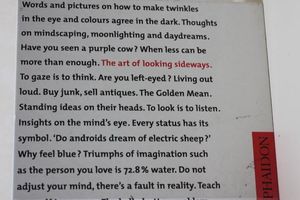 Words and pictures on how to make twinkles
in the eye and colours agree in the dark. Thoughts
on mindscaping, moonlighting and daydreams.
Have you seen a purple cow? When less can be
more than enough. The art of looking sideways.
To gaze is to think. Are you left-eyed? Living out
loud. Buy junk, sell antiques. The Golden Mean.
Standing ideas on their heads. To look is to listen.
Insights on the mind's eye. Every status has its
symbol. 'Do androids dream of electric sheep?'
Why feel blue? Triumphs of imagination such
as the person you love is 72.8% water. Do not
adjust your mind, there's a fault in reality. Teach
PHAIDON